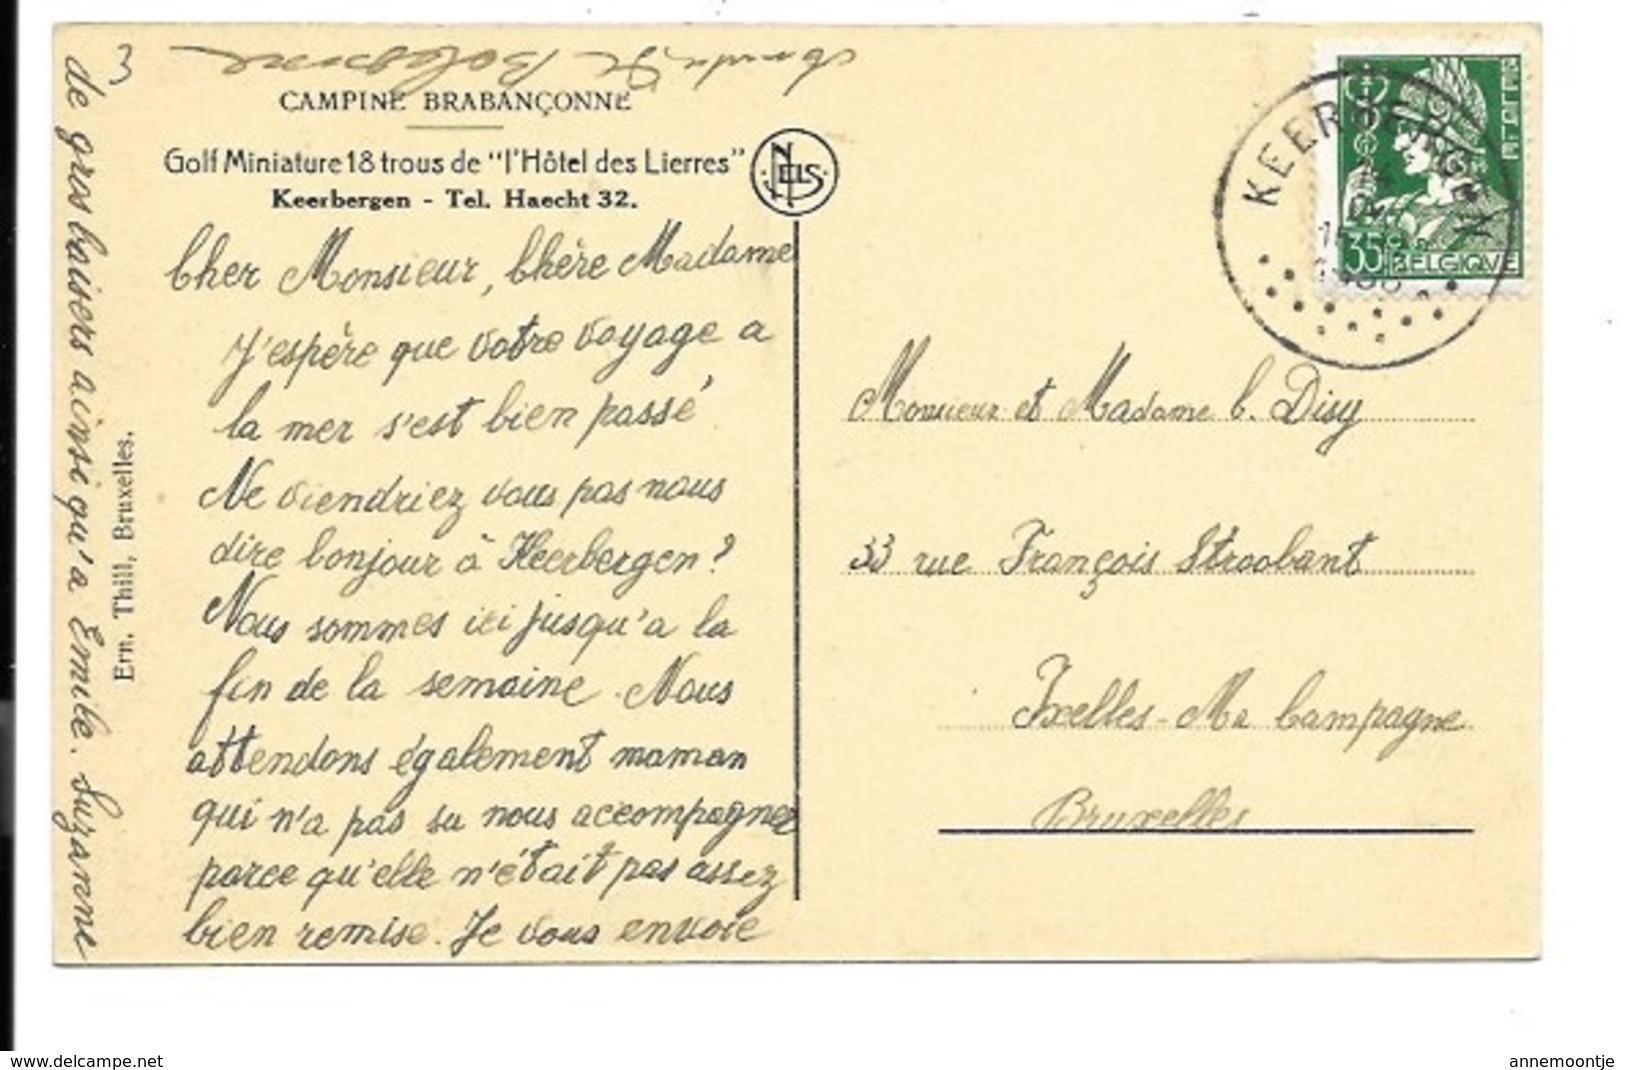 CAMPINE BRABANÇONNE
Golf Miniature 18 trous de "l'Hôtel des Lierres"
Keerbergen - Tel. Haecht 32.
NELS
Cher Monsieur, Chère Madame
J'espère que votre voyage a
la mer s'est bien passé
Ne viendriez vous pas nous
dire bonjour à Keerbergen?
Nous sommes ici jusqu'a la
fin de la semaine. Nous
attendons également maman
qui n'a pas su nous accompagner
parce qu'elle n'était pas assez
bien remise. Je vous envoie
de gros baisers ainsi qu'a Emile. Suzanne
3
Ern. Thill, Bruxelles.
KEERBERGEN
BELGIE
35c
BELGIQUE
Monsieur et Madame C. Disy
33 rue François Stroobant
Ixelles - Ma Campagne
Bruxelles
www.delcampe.net
annemoontje